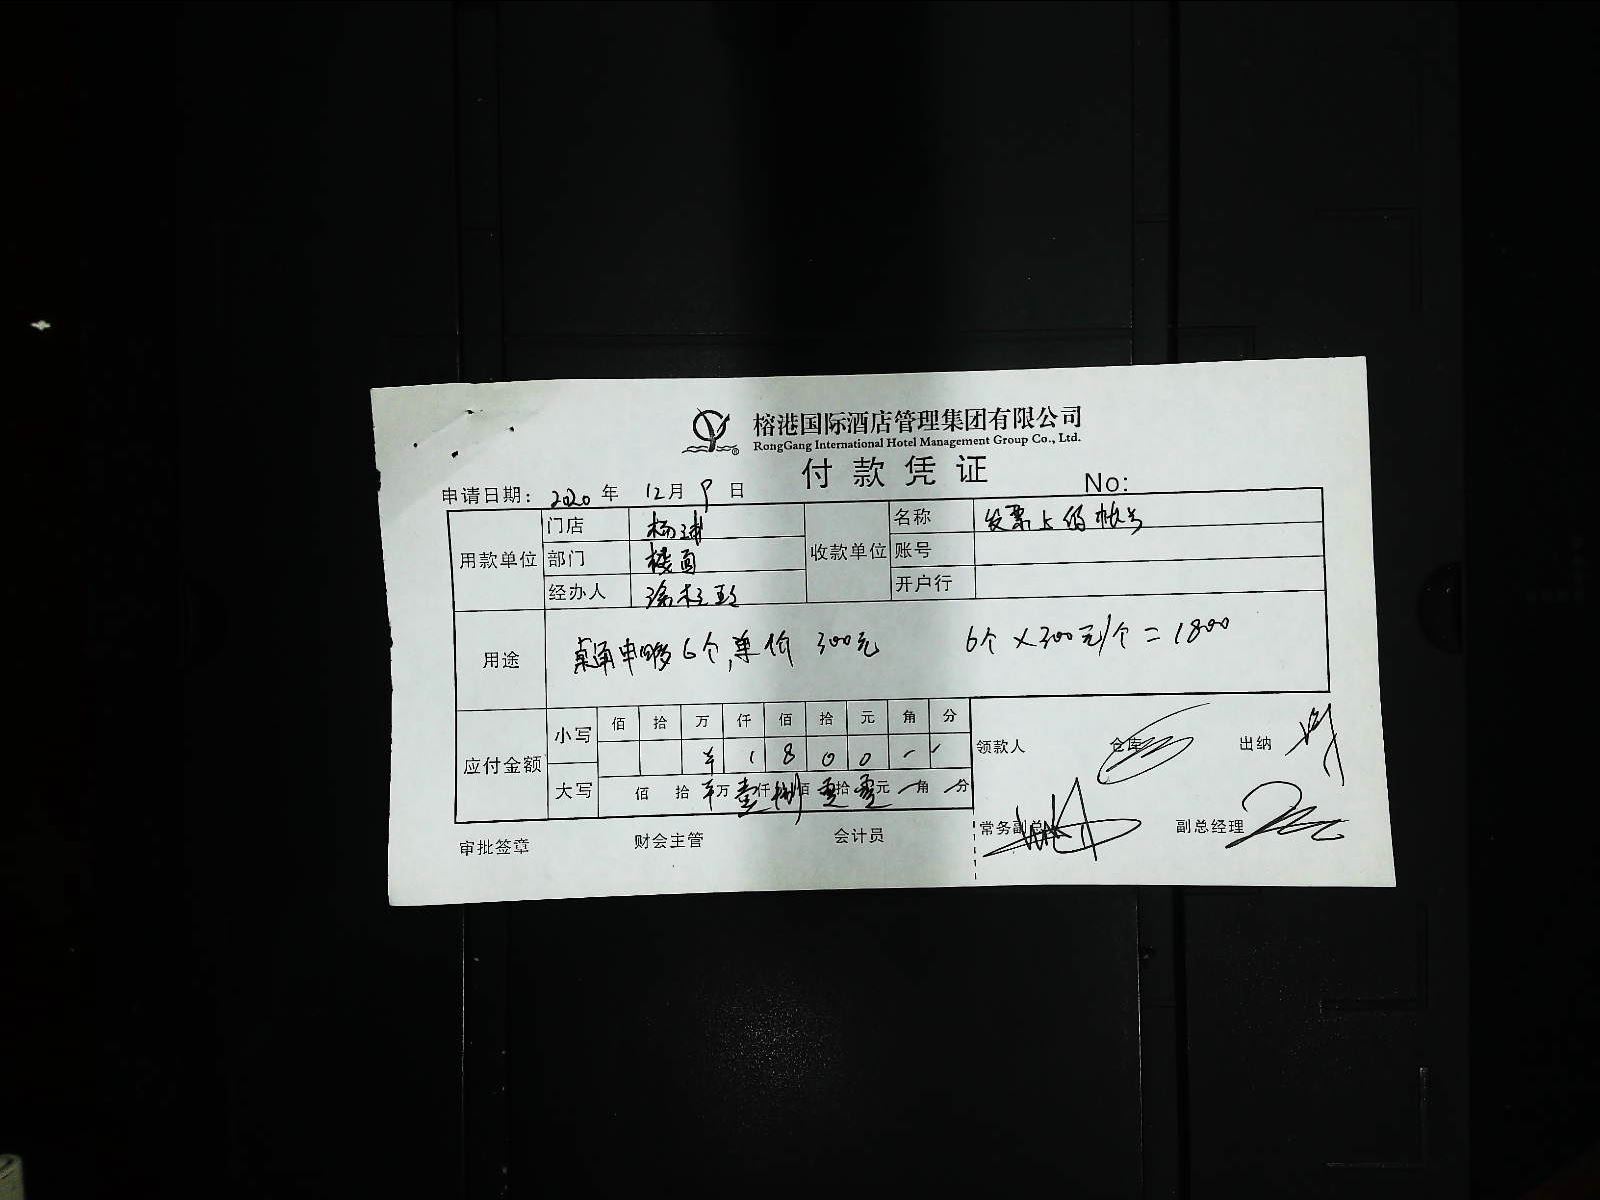 榕港国际酒店管理集团有限公司
RongGang International Hotel Management Group Co., Ltd.
付款凭证
申请日期: 2020 年 12月 9 日 No:
用款单位 门店 杨浦 收款单位 名称 发票上的帐号
部门 楼面 账号
经办人 开户行
用途 6个,单价 300元 6个×300元/个=1800
应付金额 小写 佰 拾 万 仟 佰 拾 元 角 分
¥ 1 8 0 0 - -
大写 佰 拾 ¥万 壹仟 捌佰 零拾 零元 -角 -分
领款人 仓库 出纳
常务副总 副总经理
审批签章 财会主管 会计员